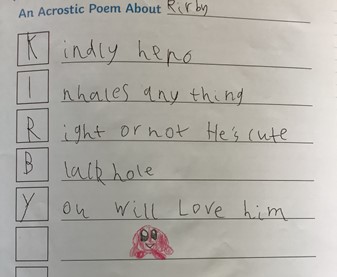 An Acrostic Poem About Kirby
K indly hero
I nhales any thing
R ight or not He's cute
B lack hole
Y ou will Love him